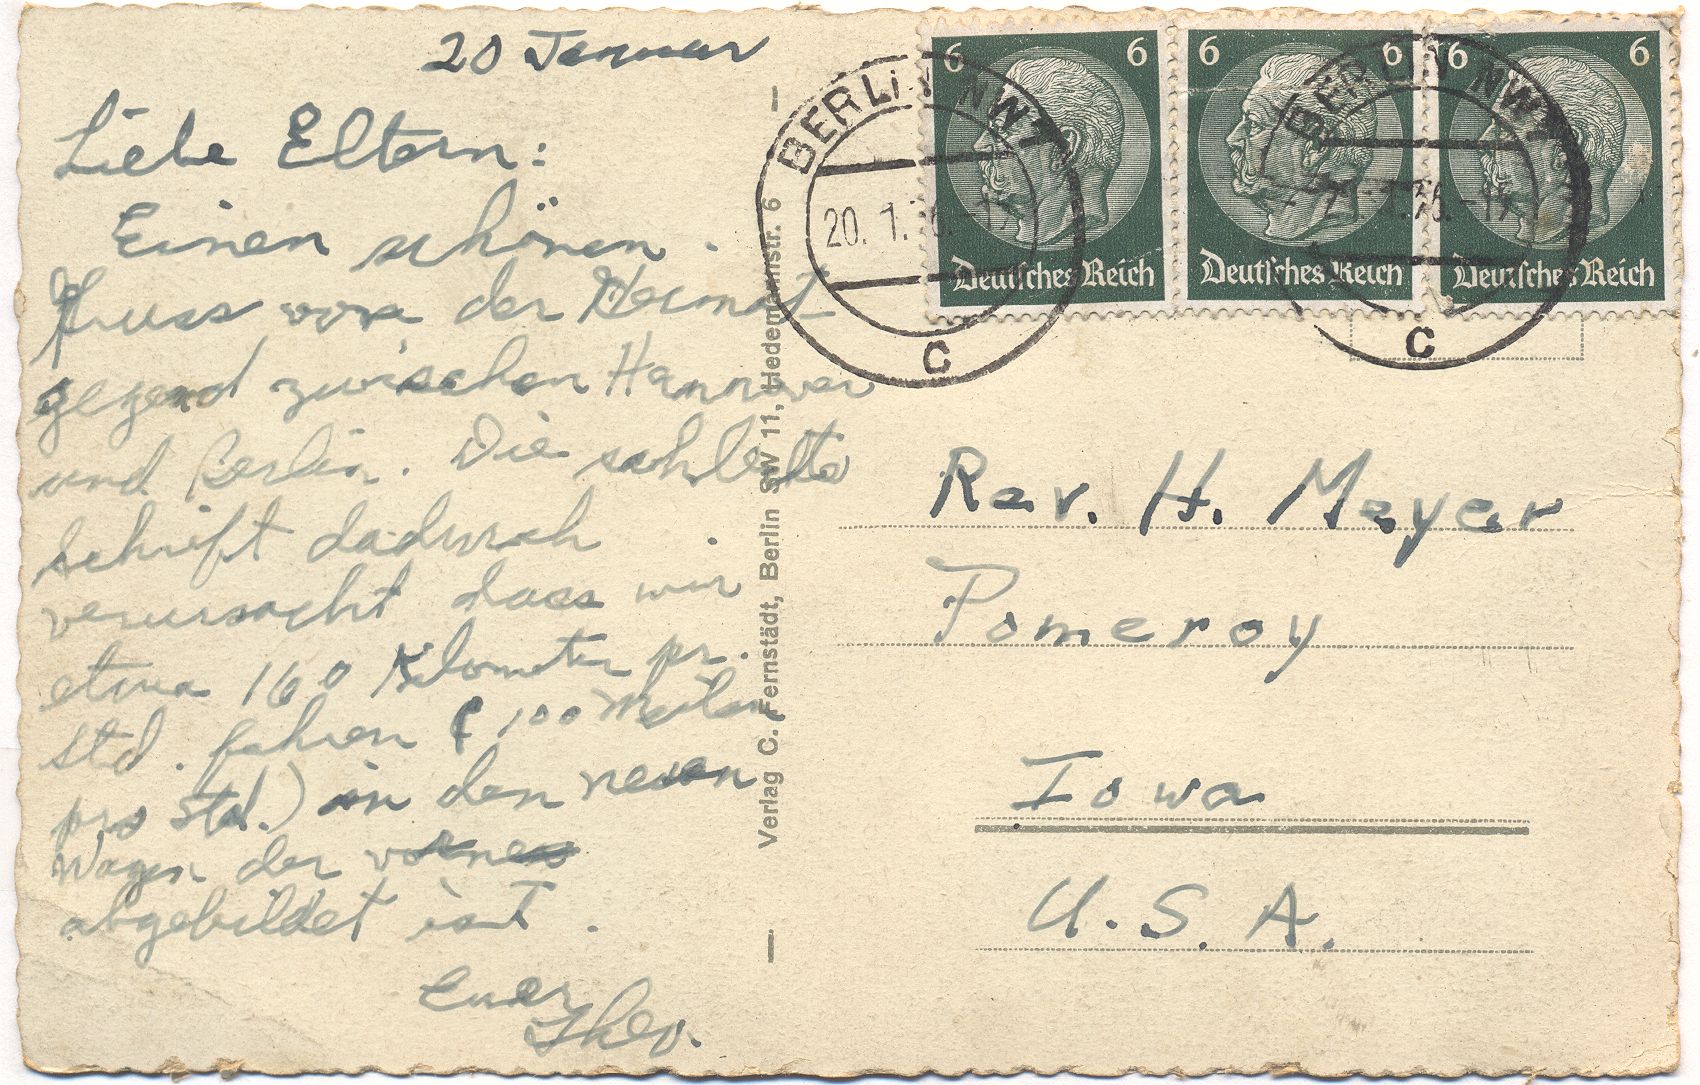 20 Januar
Liebe Eltern:
Einen schönen
Gruss von der Heimat
gegend zwischen Hannover
und Berlin. Die schlechte
schrift dadurch
verursacht dass wir
etwa 160 Kilometer pr.
std. fahren (100 Meilen
pro Std.) in den neuen
Wagen der vorne
abgebildet ist.
Euer
Theo.
Verlag C. Fernstädt, Berlin SW 11, Hedemannstr. 6
6 6
Deutsches Reich
6 6
Deutsches Reich
6 6
Deutsches Reich
BERLIN NW7
20. 1. 36.
c
BERLIN NW7
c
Rev. H. Meyer
Pomeroy
Iowa
U.S.A.